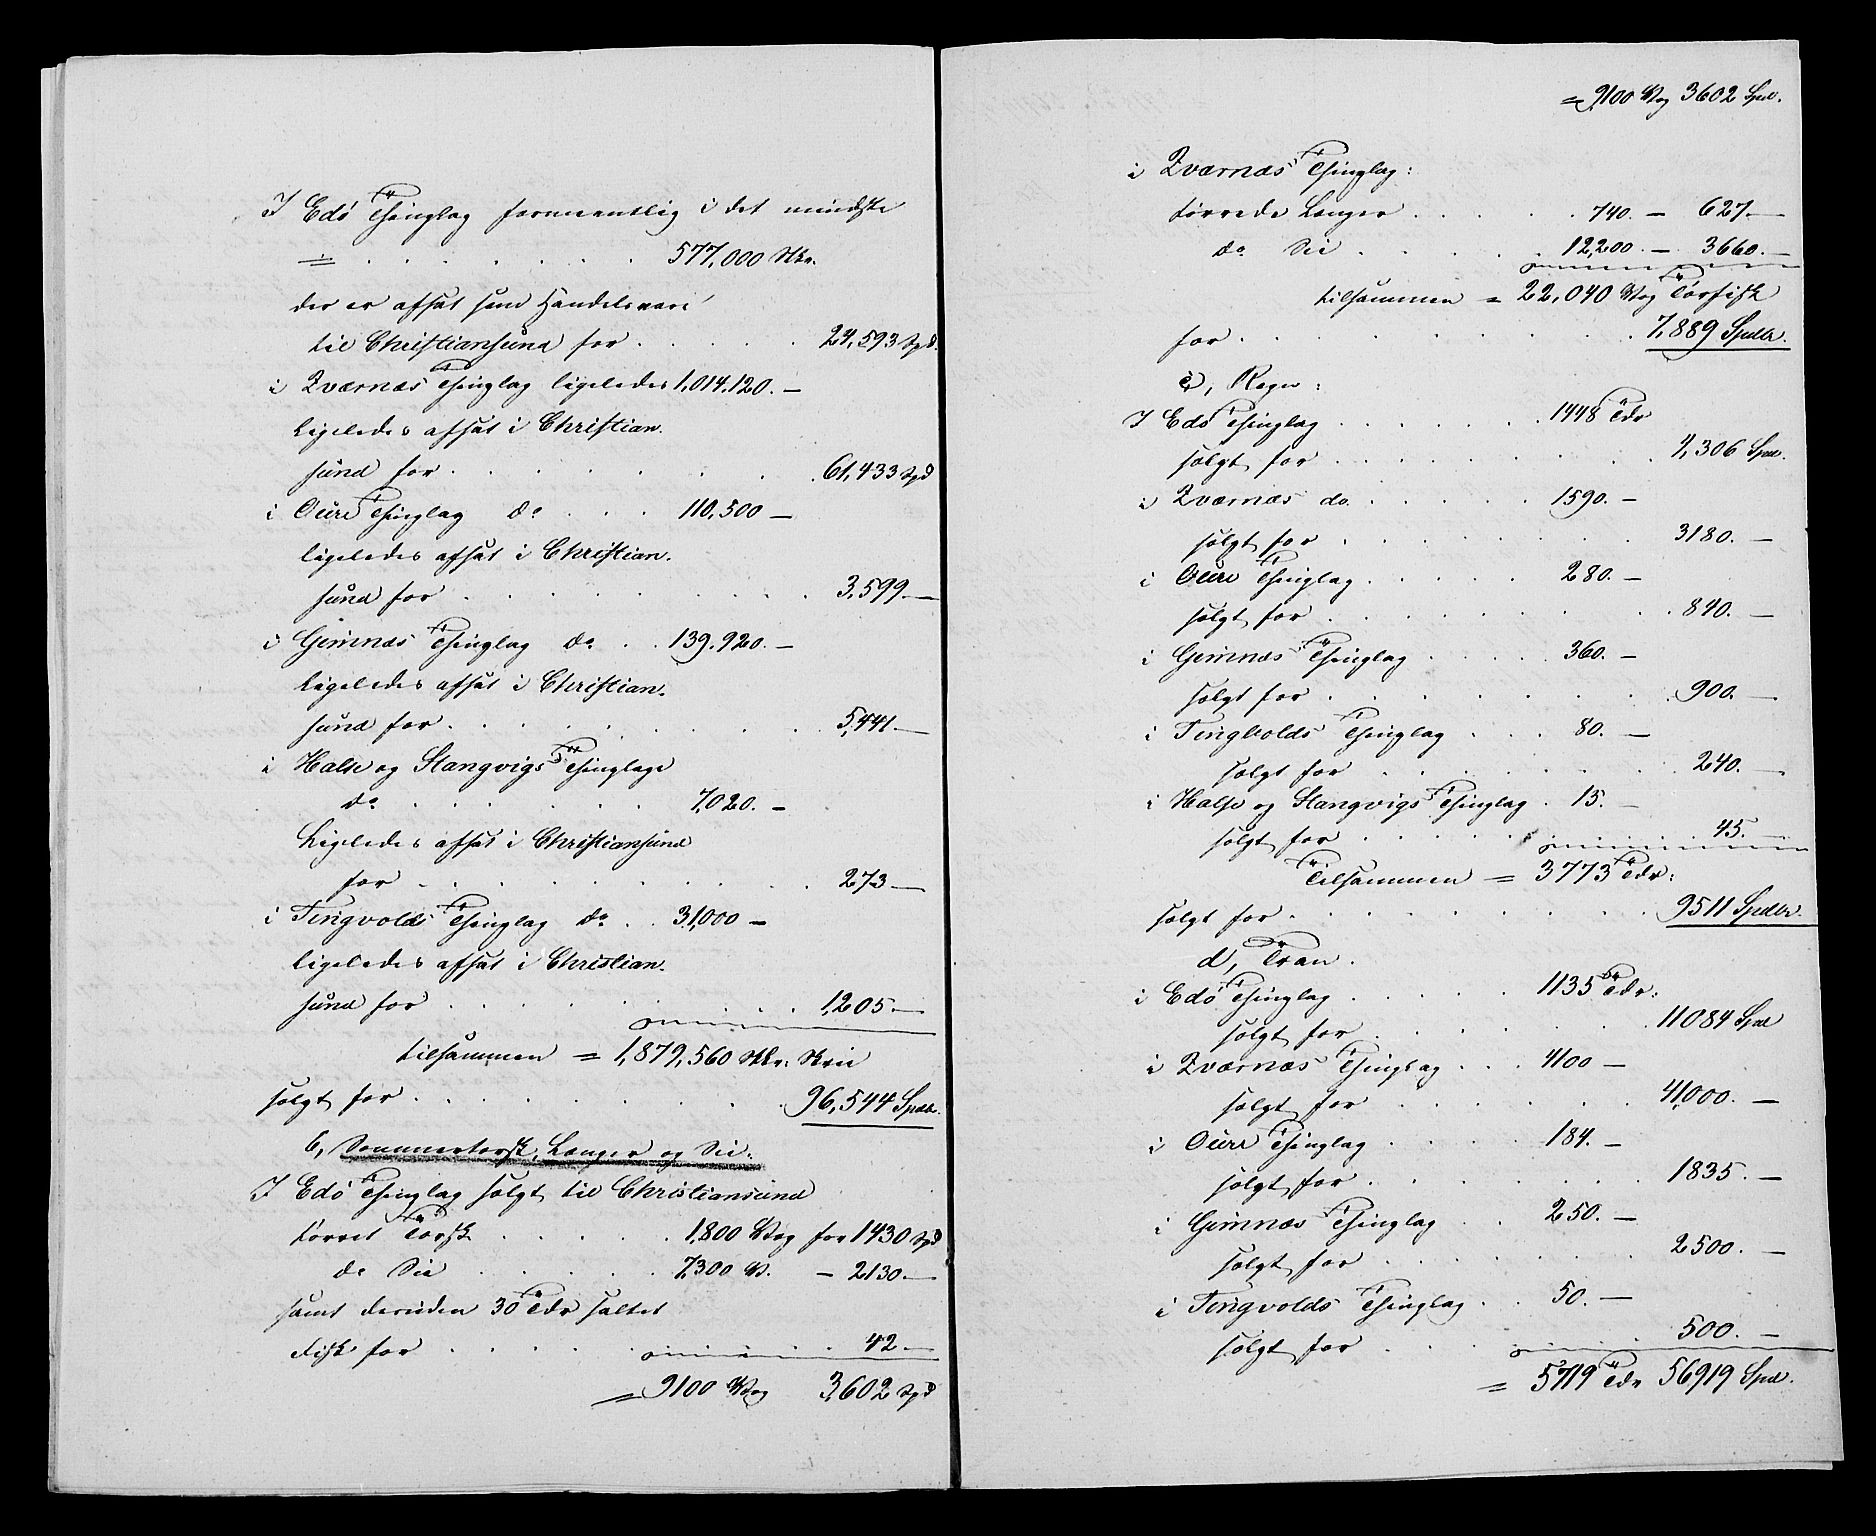 I Edö Thinglag formeentlig i det mindste
= . . . . . . . 577,000 Skr.
der er afsat som Handelsvare
til Christiansund for . . . . . 24,593 Spd.
i Qværnæs Thinglag ligeledes 1,014,120. —
ligeledes afsat i Christian-
sund for . . . . . . . 61,433 Spd
i Oure Thinglag do . . . 110,500 —
ligeledes afsat i Christian-
sund for . . . . . . . . . 3,599. —
i Gimnæs Thinglag do . . 139,920. —
ligeledes afsat i Christian-
sund for . . . . . . . . . 5,441 —
i Halse og Stangvigs Thinglage
do . . . . . . . 7,020. —
ligeledes afsat i Christiansund
for . . . . . . . . . . 273 —
i Tingvold Thinglag do . . 31,000 —
ligeledes afsat i Christian-
sund for . . . . . . . . 1,205 —
tilsammen = 1,879,560 Stkr: Skrei
solgt for . . . . . . . . . 96,544 Spdlr.
b, Sommertorsk, Længer og Sei:
I Edö Thinglag solgt til Christiansund
törret Törsk . . . . . 1,800 Vog for 1430 Spd
do Sei . . . . . 7,300 V. — 2130. —
samt desuden 30 Tdr saltet
Fisk for . . . . . . . . 42 —
= 9100 Vog 3,602 Spd
= 9100 Vog 3602 Spd.
i Qværnæs Thinglag:
törrede Længer . . . . . 740. — 627. —
do Sei . . . . . 12,200. — 3660. —
tilsammen = 22,040 Vog Törfisk
for . . . . . . . . . . 7,889 Spdlr.
c, Rogn:
I Edö Thinglag . . . . . . . 1448 Tdr
solgt for . . . . . . . . . 4,306 Spd.
i Qværnæs do. . . . . . 1590. —
solgt for . . . . . . . . 3180. —
i Oure Thinglag . . . . . 280. —
solgt for . . . . . . . . 840. —
i Gimnæs Thinglag . . . . . 360. —
solgt for . . . . . . . . 900. —
i Tingvolds Thinglag . . . 80. —
solgt for . . . . . . . 240. —
i Halse og Stangvigs Thinglag . 15. —
solgt for . . . . . . . 45. —
Tilsammen = 3773 Tdr:
solgt for . . . . . . . . . 9511 Spdlr.
d, Tran.
i Edö Thinglag . . . . . 1135 Tdr:
solgt for . . . . . . . 11084 Spd
i Qværnæs Thinglag . . . 4100 —
solgt for . . . . . . . 41,000. —
i Oure Thinglag . . . . 184. —
solgt for . . . . . . . 1835. —
i Gimnæs Thinglag . . 250. —
solgt for . . . . . . . 2500. —
i Tingvolds Thinglag . . 50. —
solgt for . . . . 500. —
= 5719 Tdr 56919 Spd.